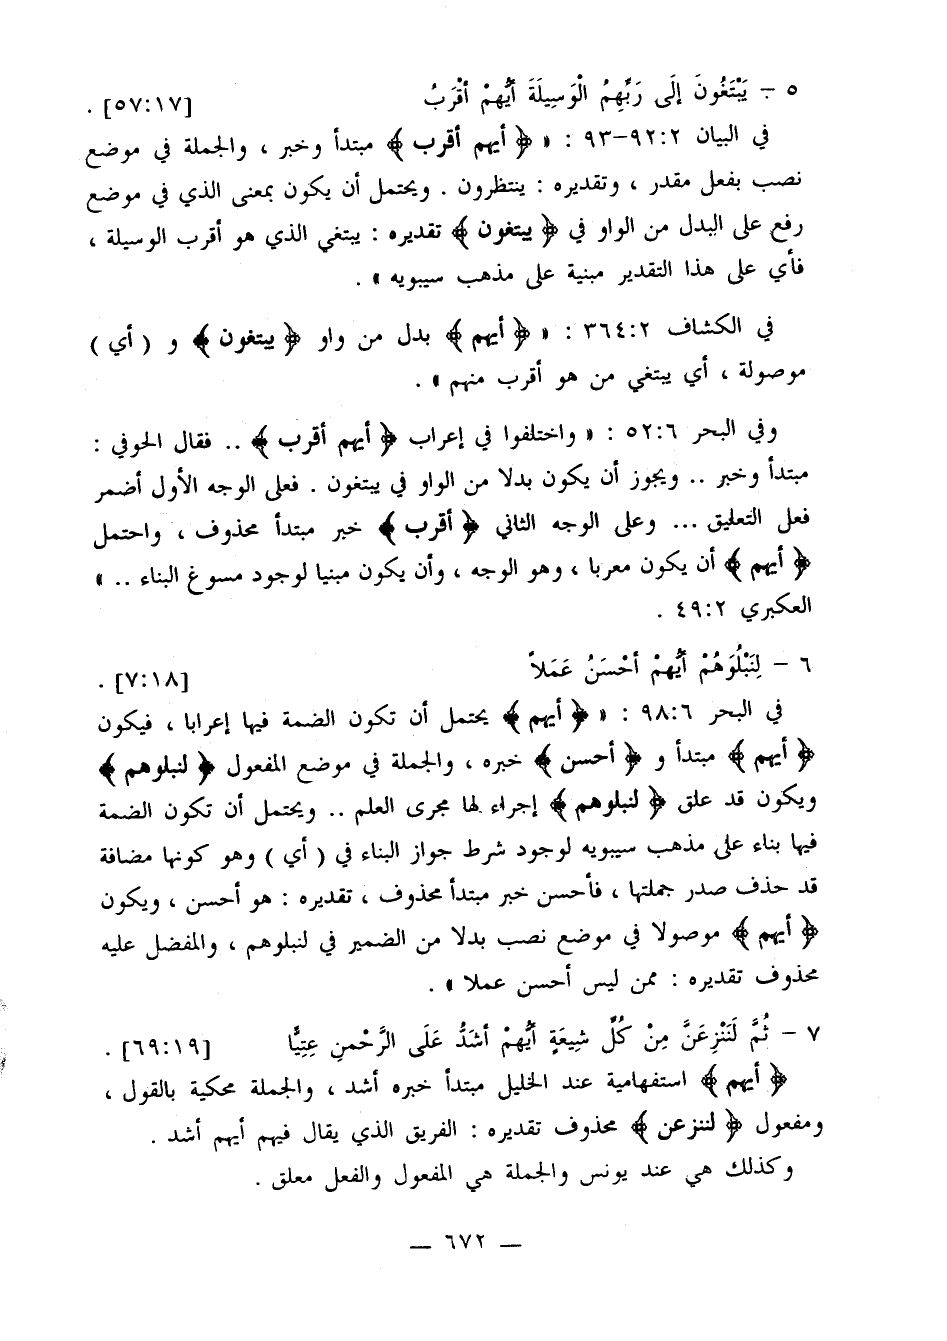 ٥ – يَبْتَغُونَ إِلَى رَبِّهِمُ الْوَسِيلَةَ أَيُّهُمْ أَقْرَبُ [٥٧:١٧] .
في البيان ٩٢:٢–٩٣ : « ﴿ أيهم أقرب ﴾ مبتدأ وخبر ، والجملة في موضع
نصب بفعل مقدر ، وتقديره : ينتظرون . ويحتمل أن يكون بمعنى الذي في موضع
رفع على البدل من الواو في ﴿ يبتغون ﴾ تقديره : يبتغي الذي هو أقرب الوسيلة ،
فأي على هذا التقدير مبنية على مذهب سيبويه » .
في الكشاف ٣٦٤:٢ : « ﴿ أيهم ﴾ بدل من واو ﴿ يبتغون ﴾ و ( أي )
موصولة ، أي يبتغي من هو أقرب منهم » .
وفي البحر ٥٢:٦ : « واختلفوا في إعراب ﴿ أيهم أقرب ﴾ .. فقال الحوفي :
مبتدأ وخبر .. ويجوز أن يكون بدلا من الواو في يبتغون . فعلى الوجه الأول أضمر
فعل التعليق ... وعلى الوجه الثاني ﴿ أقرب ﴾ خبر مبتدأ محذوف ، واحتمل
﴿ أيهم ﴾ أن يكون معربا ، وهو الوجه ، وأن يكون مبنيا لوجود مسوغ البناء .. »
العكبري ٤٩:٢ .
٦ – لِنَبْلُوَهُمْ أَيُّهُمْ أَحْسَنُ عَمَلاً [٧:١٨] .
في البحر ٩٨:٦ : « ﴿ أيهم ﴾ يحتمل أن تكون الضمة فيها إعرابا ، فيكون
﴿ أيهم ﴾ مبتدأ و ﴿ أحسن ﴾ خبره ، والجملة في موضع المفعول ﴿ لنبلوهم ﴾
ويكون قد علق ﴿ لنبلوهم ﴾ إجراء لها مجرى العلم .. ويحتمل أن تكون الضمة
فيها بناء على مذهب سيبويه لوجود شرط جواز البناء في ( أي ) وهو كونها مضافة
قد حذف صدر جملتها ، فأحسن خبر مبتدأ محذوف ، تقديره : هو أحسن ، ويكون
﴿ أيهم ﴾ موصولا في موضع نصب بدلا من الضمير في لنبلوهم ، والمفضل عليه
محذوف تقديره : ممن ليس أحسن عملا » .
٧ – ثُمَّ لَنَنْزِعَنَّ مِنْ كُلِّ شِيعَةٍ أَيُّهُمْ أَشَدُّ عَلَى الرَّحْمنِ عِتِيًّا [٦٩:١٩] .
﴿ أيهم ﴾ استفهامية عند الخليل مبتدأ خبره أشد ، والجملة محكية بالقول ،
ومفعول ﴿ لننزعن ﴾ محذوف تقديره : الفريق الذي يقال فيهم أيهم أشد .
وكذلك هي عند يونس والجملة هي المفعول والفعل معلق .
— ٦٧٢ —